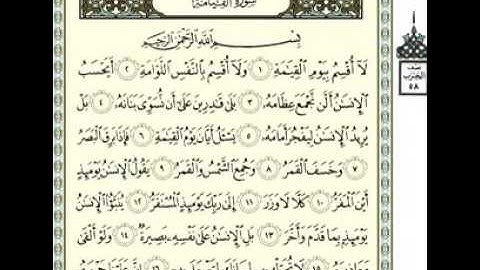 سُورَةُ القِيَامَةِ
بِسْمِ ٱللَّهِ ٱلرَّحْمَٰنِ ٱلرَّحِيمِ
لَآ أُقْسِمُ بِيَوْمِ ٱلْقِيَٰمَةِ ١ وَلَآ أُقْسِمُ بِٱلنَّفْسِ ٱللَّوَّامَةِ ٢ أَيَحْسَبُ
ٱلْإِنسَٰنُ أَلَّن نَّجْمَعَ عِظَامَهُۥ ٣ بَلَىٰ قَٰدِرِينَ عَلَىٰٓ أَن نُّسَوِّىَ بَنَانَهُۥ ٤ بَلْ
يُرِيدُ ٱلْإِنسَٰنُ لِيَفْجُرَ أَمَامَهُۥ ٥ يَسْـَٔلُ أَيَّانَ يَوْمُ ٱلْقِيَٰمَةِ ٦ فَإِذَا بَرِقَ ٱلْبَصَرُ
٧ وَخَسَفَ ٱلْقَمَرُ ٨ وَجُمِعَ ٱلشَّمْسُ وَٱلْقَمَرُ ٩ يَقُولُ ٱلْإِنسَٰنُ يَوْمَئِذٍ
أَيْنَ ٱلْمَفَرُّ ١٠ كَلَّا لَا وَزَرَ ١١ إِلَىٰ رَبِّكَ يَوْمَئِذٍ ٱلْمُسْتَقَرُّ ١٢ يُنَبَّؤُا۟ ٱلْإِنسَٰنُ
يَوْمَئِذٍۭ بِمَا قَدَّمَ وَأَخَّرَ ١٣ بَلِ ٱلْإِنسَٰنُ عَلَىٰ نَفْسِهِۦ بَصِيرَةٌ ١٤ وَلَوْ أَلْقَىٰ
نصف
الحزب
٥٨